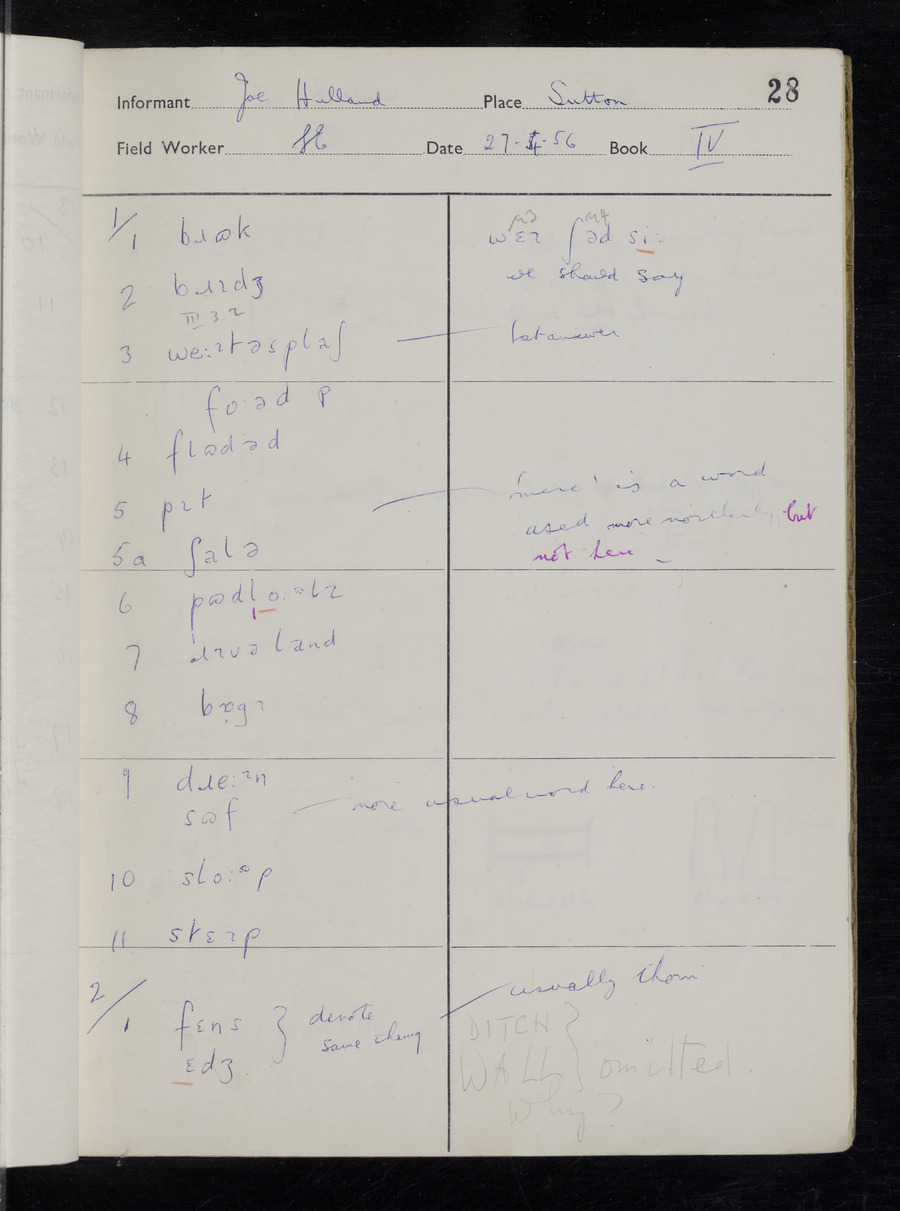 28
Informant Joe Holland Place Sutton
Field Worker SE Date 27-4-56 Book IV
1/1 bɹɷk
wɛɪ ʃəd si:
we should say
2 bɹɪdʒ
III 3.2
3 we:ɪtəsplaʃ
fo·əd p
4 flɷdəd
5 pɪt
'mere' is a word
used more northerly but
not here
5a ʃalə
6 pɷdl
7 ɹɪvəland
8 bɷgɪ
9 dɹe:ɪn
sɷf more usual word here.
10 slo:ᵊp
11 stɛɪp
2/1 fɛns } denote usually thorn
ɛdʒ same thing
DITCH }
WALL } omitted.
Why?